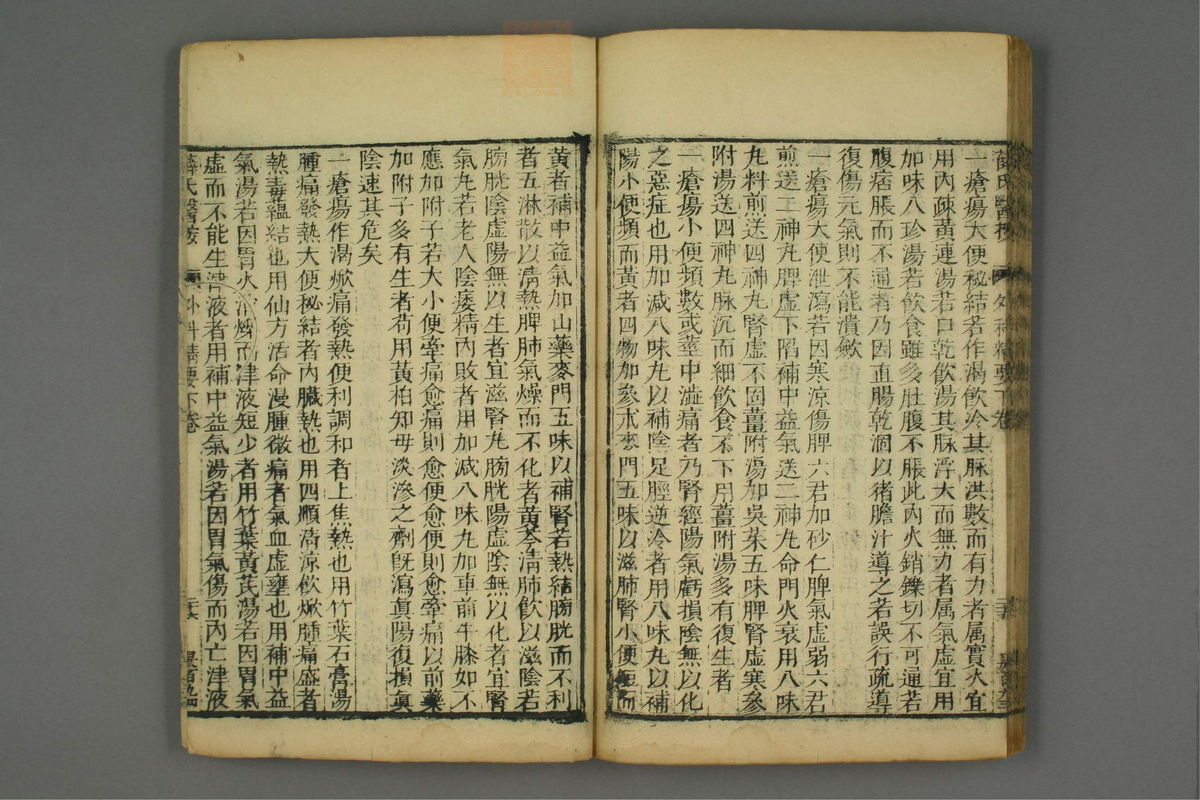 薛氏醫按 外科精要下卷
一瘡瘍大便秘結若作渴飲冷其脉洪數而有力者属實火宜
用内疎黃連湯若口乾飲湯其脉浮大而無力者属氣虚宜用
加味八珍湯若飲食雖多肚腹不脹此内火銷鑠切不可通若
腹痞脹而不通者乃因直腸乾涸以猪膽汁導之若誤行疏導
復傷元氣則不能潰斂
一瘡瘍大便泄瀉若因寒涼傷脾六君加砂仁脾氣虚弱六君
煎送二神丸脾虚下陷補中益氣送二神丸命門火衰用八味
丸料煎送四神丸腎虚不固薑附湯加吳茱五味脾腎虚寒參
附湯送四神丸脉沉而細飲食不下用薑附湯多有復生者
一瘡瘍小便頻數或莖中澁痛者乃腎經陽氣虧損陰無以化
之惡症也用加减八味丸以補陰足脛逆冷者用八味丸以補
陽小便頻而黃者四物加參朮麥門五味以滋肺腎小便短而
黃者補中益氣加山藥麥門五味以補腎若熱結膀胱而不利
者五淋散以淸熱脾肺氣燥而不化者黃芩淸肺飲以滋陰若
膀胱陰虚陽無以生者宜滋腎丸膀胱陽虚陰無以化者宜腎
氣丸若老人陰痿精内敗者用加减八味丸加車前牛膝如不
應加附子若大小便牽痛愈痛則愈便愈便則愈牽痛以前藥
加附子多有生者苟用黃柏知母淡滲之劑既瀉眞陽復損眞
陰速其危矣
一瘡瘍作渴焮痛發熱便利調和者上焦熱也用竹葉石膏湯
腫痛發熱大便秘結者内臓熱也用四順淸涼飲焮腫痛盛者
熱毒蘊結也用仙方活命漫腫微痛者氣血虚壅也用補中益
氣湯若因胃火消爍而津液短少者用竹葉黃芪湯若因胃氣
虚而不能生津液者用補中益氣湯若因胃氣傷而内亡津液
薛氏醫按 外科精要下卷